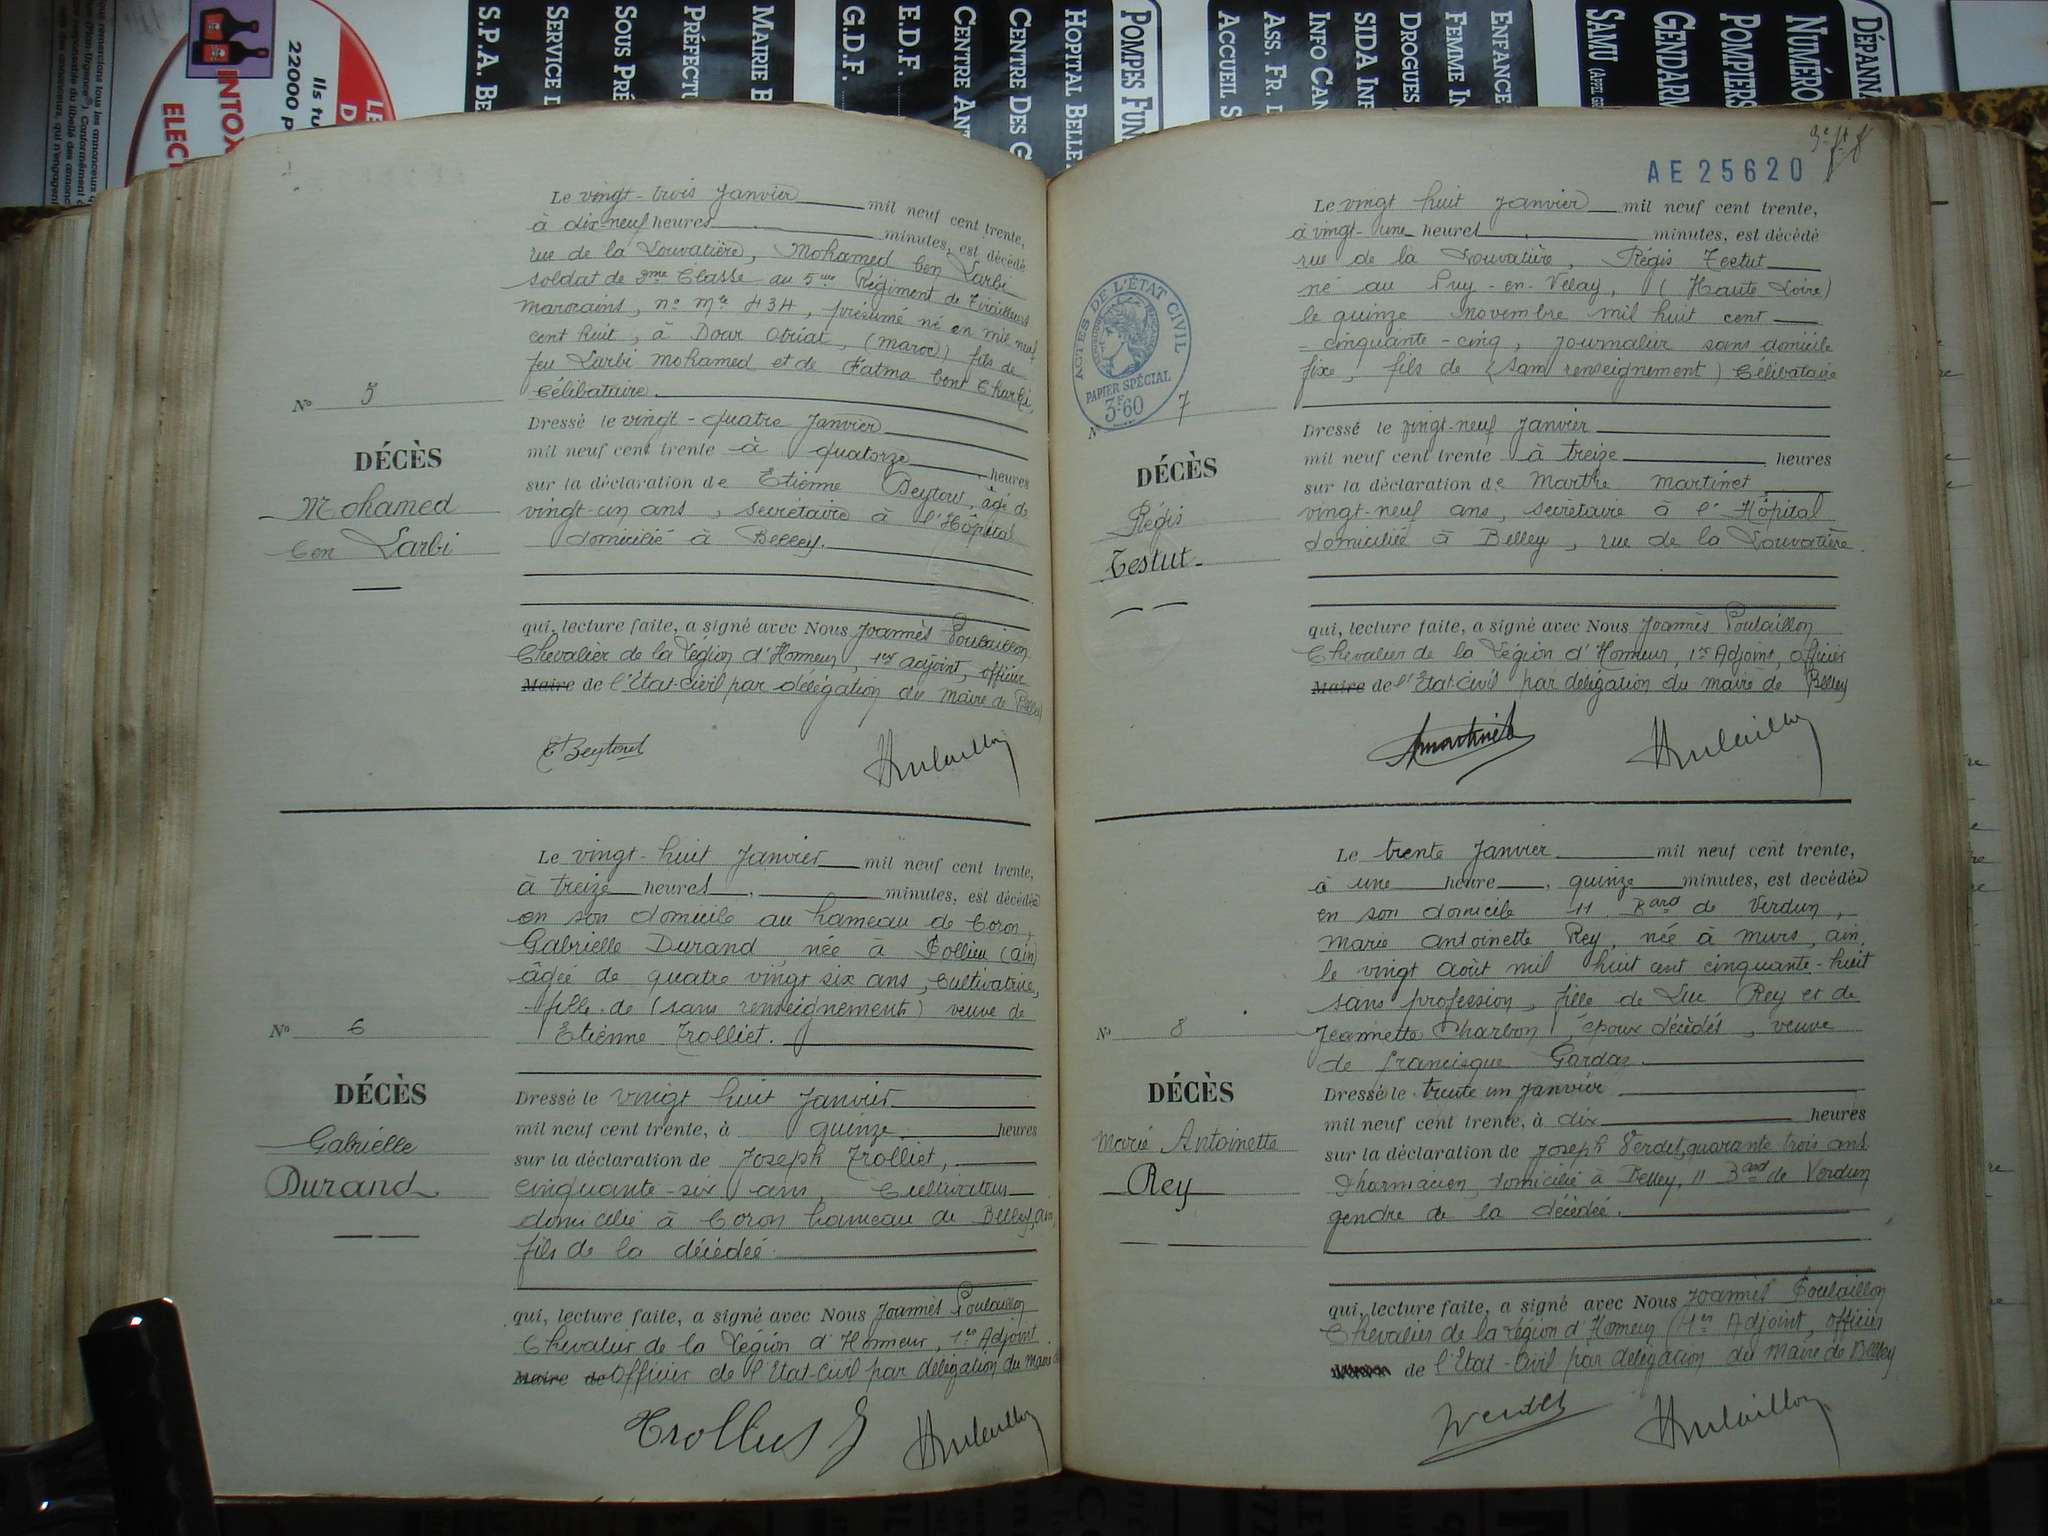 INTOX
ELEC
22000
Ils tu
S.P.A. BE
SERVICE
SOUS PRÉ
PRÉFECT
MAIRIE B
G.D.F.
E.D.F.
CENTRE ANT
CENTRE DES G
HOPITAL BELLE
POMPES FUN
ACCUEIL S
ASS. FR.
INFO CAN
SIDA INF
DROGUES
FEMME IN
ENFANCE
SAMU
GENDARM
POMPIERS
NUMÉRO
DÉPANNA
Le vingt-trois Janvier mil neuf cent trente,
à dix-neuf heures minutes, est décédé
rue de la Louvatière, Mohamed ben Larbi
soldat de 2me Classe au 5me Régiment de Tirailleurs
marocains, no mle 434, présumé né en mil neuf
cent huit, à Doar Obriat, (maroc) fils de
feu Larbi Mohamed et de Fatma bent Charki,
Célibataire.
No 5
DÉCÈS
Mohamed
ben Larbi
Dressé le vingt-quatre Janvier
mil neuf cent trente à quatorze heures
sur la déclaration de Etienne Beytout, âgé de
vingt-un ans, secrétaire à l'Hôpital
domicilié à Belley.
qui, lecture faite, a signé avec Nous Joannès Poulaillon
Chevalier de la Légion d'Honneur, 1er adjoint, officier
Maire de l'Etat-civil par délégation du maire de Belley
E Beytout
Le vingt-huit Janvier mil neuf cent trente,
à treize heures minutes, est décédée
en son domicile au hameau de Coron,
Gabrielle Durand née à Pollieu (ain)
âgée de quatre vingt six ans, cultivatrice,
fille de (sans renseignements) veuve de
Etienne Trolliet.
No 6
DÉCÈS
Gabrielle
Durand
Dressé le vingt huit Janvier
mil neuf cent trente, à quinze heures
sur la déclaration de Joseph Trolliet,
cinquante-six ans, Cultivateur
domicilié à Coron hameau de Belley, ain,
fils de la décédée.
qui, lecture faite, a signé avec Nous Joannès Poulaillon
Chevalier de la Légion d'Honneur, 1er Adjoint
Maire de Officier de l'Etat-Civil par délégation du Maire de
AE 25620
Le vingt huit Janvier mil neuf cent trente,
à vingt-une heures minutes, est décédé
rue de la Louvatière, Régis Testut
né au Puy-en-Velay, (Haute Loire)
le quinze novembre mil huit cent
cinquante-cinq, Journalier sans domicile
fixe, fils de (sans renseignement) Célibataire
ACTES DE L'ÉTAT CIVIL
PAPIER SPÉCIAL
3F60
No 7
DÉCÈS
Régis
Testut
Dressé le vingt-neuf Janvier
mil neuf cent trente à treize heures
sur la déclaration de Marthe Martinet
vingt-neuf ans, secrétaire à l'Hôpital
domiciliée à Belley, rue de la Louvatière.
qui, lecture faite, a signé avec Nous Joannès Poulaillon
Chevalier de la Légion d'Honneur, 1er Adjoint, officier
Maire de l'Etat-Civil par délégation du maire de Belley
Martinet
Le trente Janvier mil neuf cent trente,
à une heure quinze minutes, est décédée
en son domicile 11 Bard de Verdun,
Marie Antoinette Rey, née à Murs, ain,
le vingt août mil huit cent cinquante-huit
sans profession, fille de Luc Rey et de
Jeannette Charbon, époux décédés, veuve
de Francisque Gardas
No 8
DÉCÈS
Marie Antoinette
Rey
Dressé le trente un Janvier
mil neuf cent trente, à dix heures
sur la déclaration de Joseph Verdet, quarante trois ans
Pharmacien, domicilié à Belley, 11 Bard de Verdun
gendre de la décédée.
qui, lecture faite, a signé avec Nous Joannès Poulaillon
Chevalier de la Légion d'Honneur, 1er Adjoint, officier
de l'Etat-Civil par délégation du Maire de Belley
Verdet